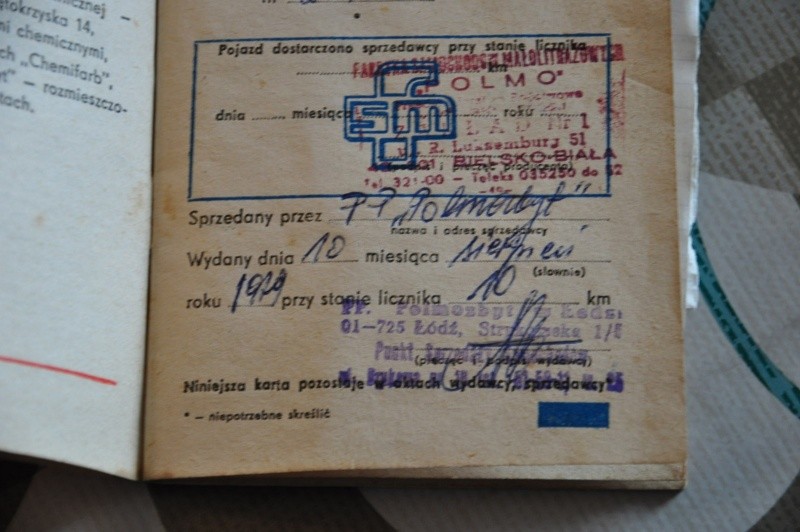 icznej –
ętokrzyska 14,
mi chemicznymi,
ch „Chemifarb",
yt" – rozmieszczo-
tach.
nr
Pojazd dostarczono sprzedawcy przy stanie licznika
km
FABRYKA SAMOCHODÓW MAŁOLITRAŻOWYCH
POLMO"
dnia miesiąca roku
ZAKŁAD Nr 1
ul. R. Luksemburg 51
BIELSKO-BIAŁA
(podpis i pieczęć producenta)
Tel. 321-00 – Teleks 035250 do 52
FSM
Sprzedany przez PP „Polmozbyt"
nazwa i adres sprzedawcy
Wydany dnia 10 miesiąca sierpień
(słownie)
roku 1979 przy stanie licznika 10 km
PP. Polmozbyt w Łodzi
01-725 Łódź, 1/5
Punkt
(pieczęć i podpis wydawcy)
Niniejsza karta pozostaje w aktach wydawcy, sprzedawcy*
* – niepotrzebne skreślić